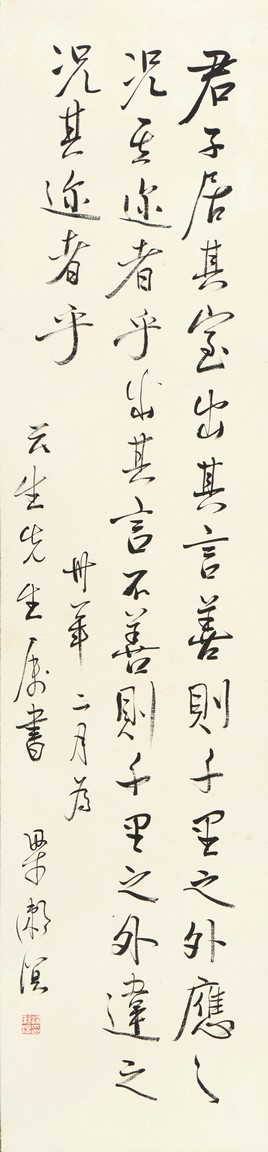 君子居其室出其言善則千里之外應之
況其迩者乎出其言不善則千里之外違之
況其迩者乎
卅年二月為
云生先生属書
梁漱溟